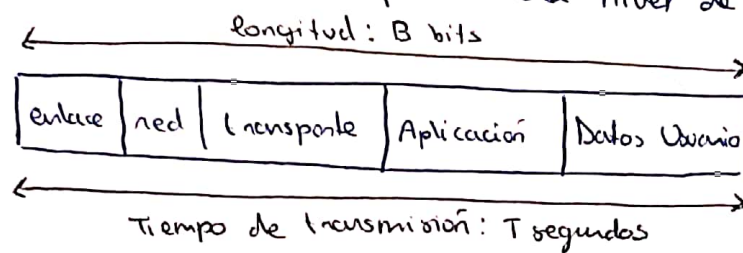 nivel de
longitud: B bits
enlace red transporte Aplicación Datos Usuario
Tiempo de transmisión: T segundos